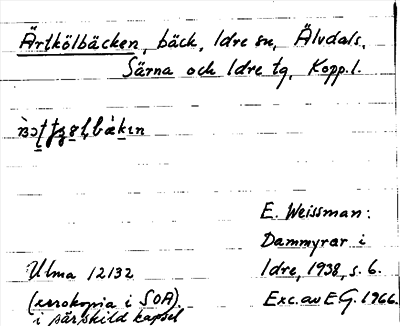 Ärtkölbäcken, bäck, Idre sn, Älvdals,
Särna och Idre tg, Kopp. l.
E. Weissman:
Dammyrar i
Idre, 1938, s. 6.
Exc. av E G. 1966.
Ulma 12132
(xerokopia i SOA).
i särskild kapsel